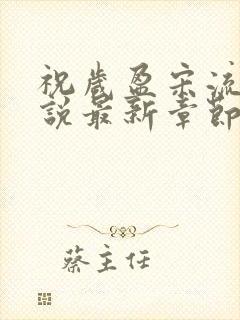 祝歲盈宋流
說最新章節
蔡主任